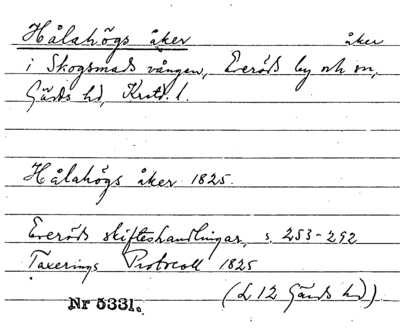 Hålahögs åker åker
i Skogsmads vången, Everöds by och sn,
Gärds hd, Krst. l.
Hålahögs åker 1825.
Everöds skifteshandlingar, s. 253-292
Taxerings Protocoll 1825
(L 12 Gärds hd)
Nr 5331.